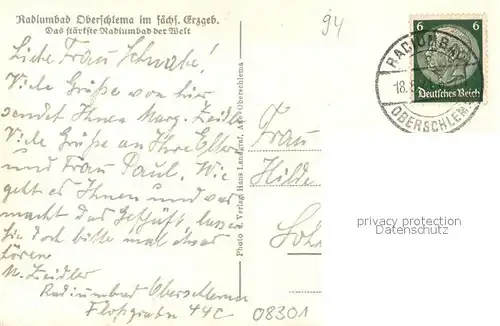 Radiumbad Oberschlema im sächs. Erzgeb.
Das stärkste Radiumbad der Welt
94
Liebe Frau Schwabe!
Viele Grüße von hier
sendet Ihnen Marg. Zeidler
Viele Grüße an Ihre Eltern
und Frau Paul. Wie
geht es Ihnen und was
macht das Geschäft lassen
Sie doch bitte mal etwas
hören
M. Zeidler
Radiumbad Oberschlema
Floßgraben 44C
Photo u. Verlag Hans Landgraf, Aue-Oberschlema
6 6
Deutsches Reich
RADIUMBAD
18.
OBERSCHLEMA
Frau
Hilde
privacy protection
Datenschutz
08301